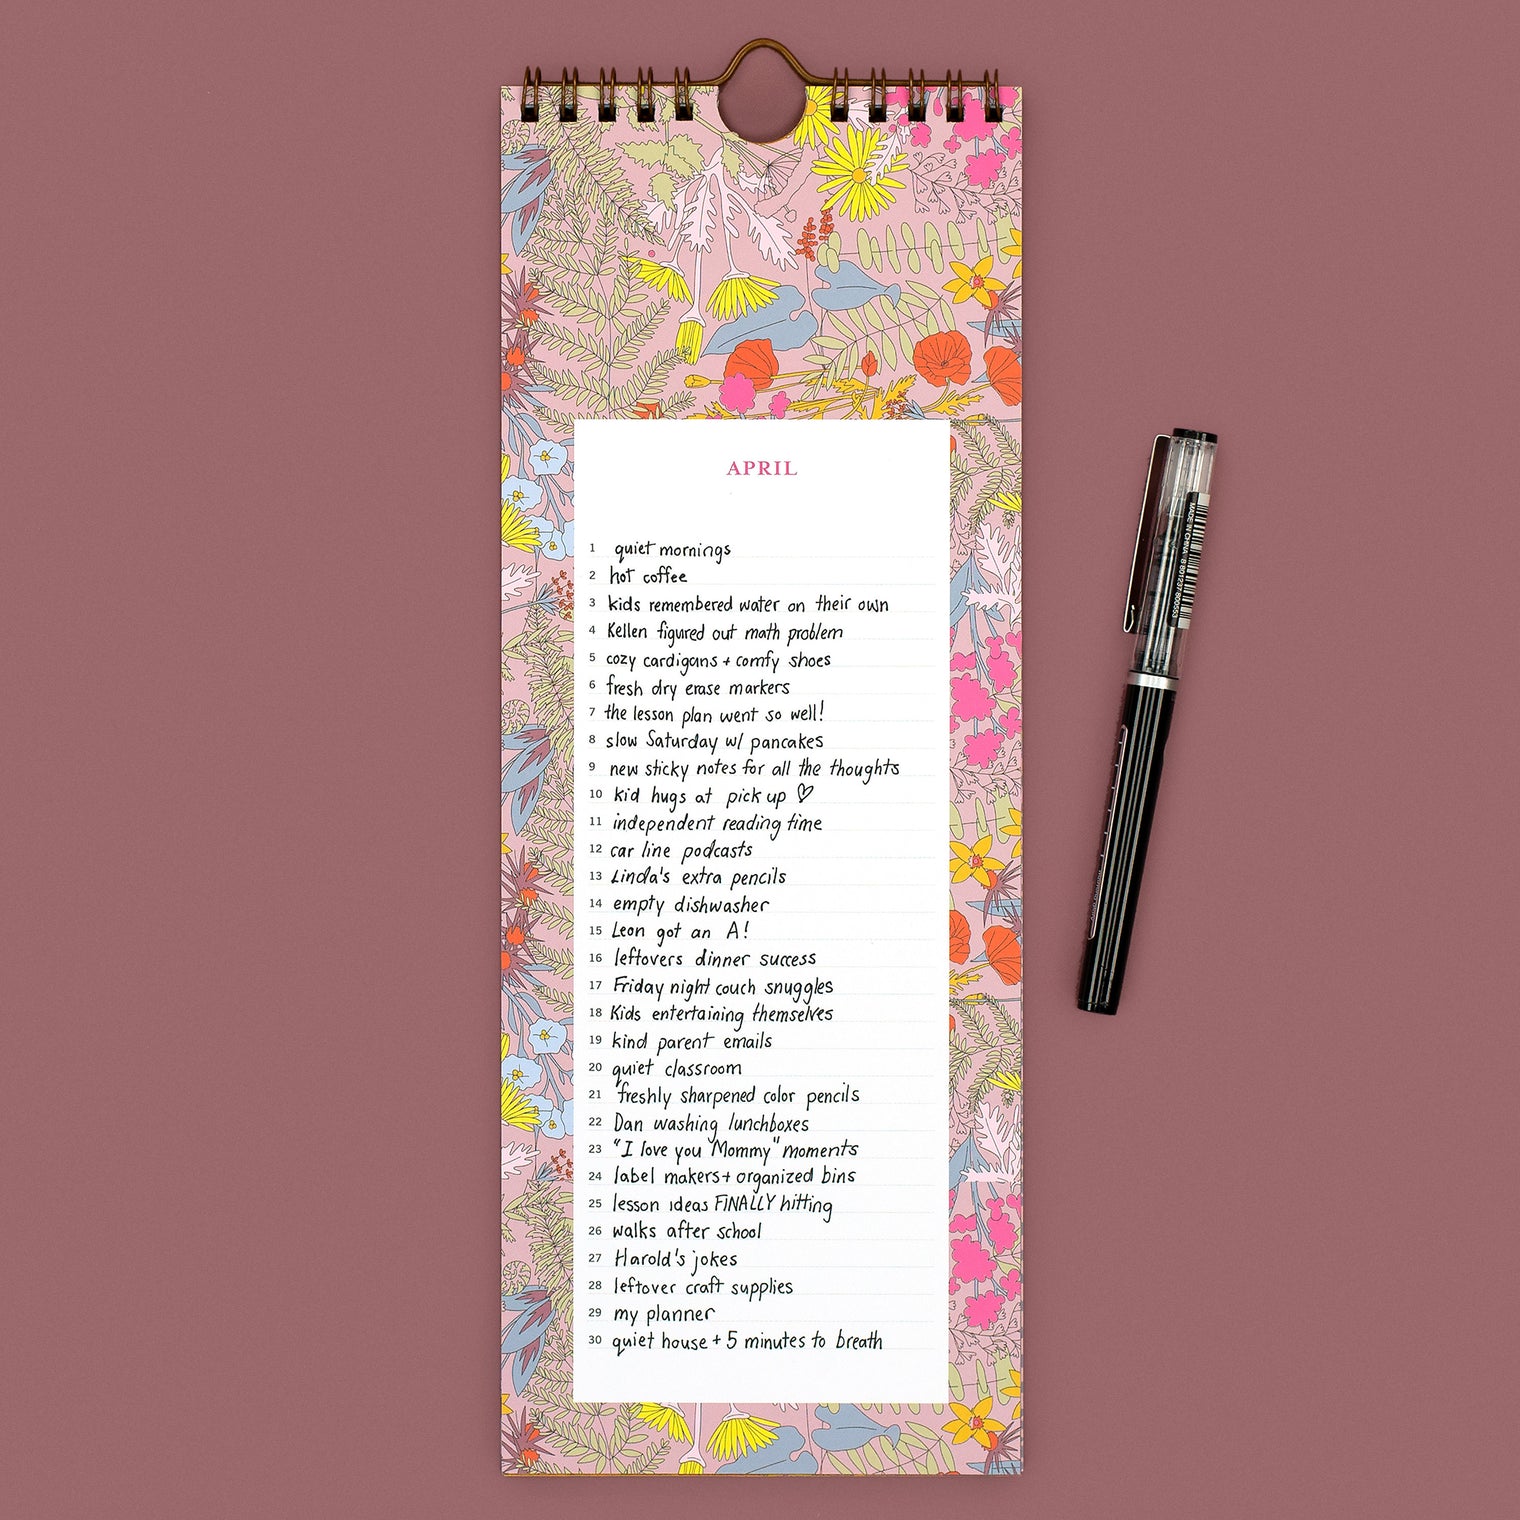 APRIL
1 quiet mornings
2 hot coffee
3 kids remembered water on their own
4 Kellen figured out math problem
5 cozy cardigans + comfy shoes
6 fresh dry erase markers
7 the lesson plan went so well!
8 slow Saturday w/ pancakes
9 new sticky notes for all the thoughts
10 kid hugs at pick up ♡
11 independent reading time
12 car line podcasts
13 Linda's extra pencils
14 empty dishwasher
15 Leon got an A!
16 leftovers dinner success
17 Friday night couch snuggles
18 Kids entertaining themselves
19 kind parent emails
20 quiet classroom
21 freshly sharpened color pencils
22 Dan washing lunchboxes
23 "I love you Mommy" moments
24 label makers + organized bins
25 lesson ideas FINALLY hitting
26 walks after school
27 Harold's jokes
28 leftover craft supplies
29 my planner
30 quiet house + 5 minutes to breath
MADE IN CHINA